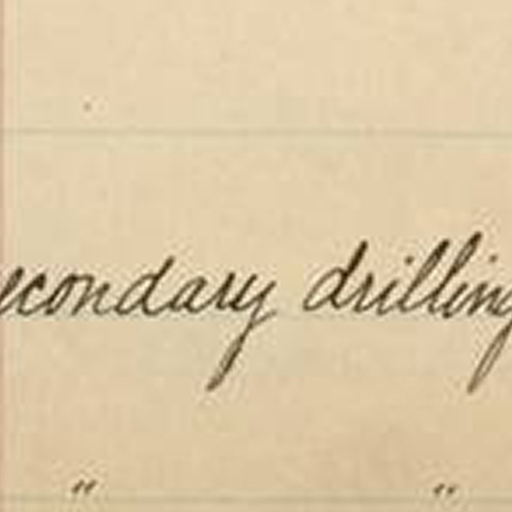 econdary drilling
" "